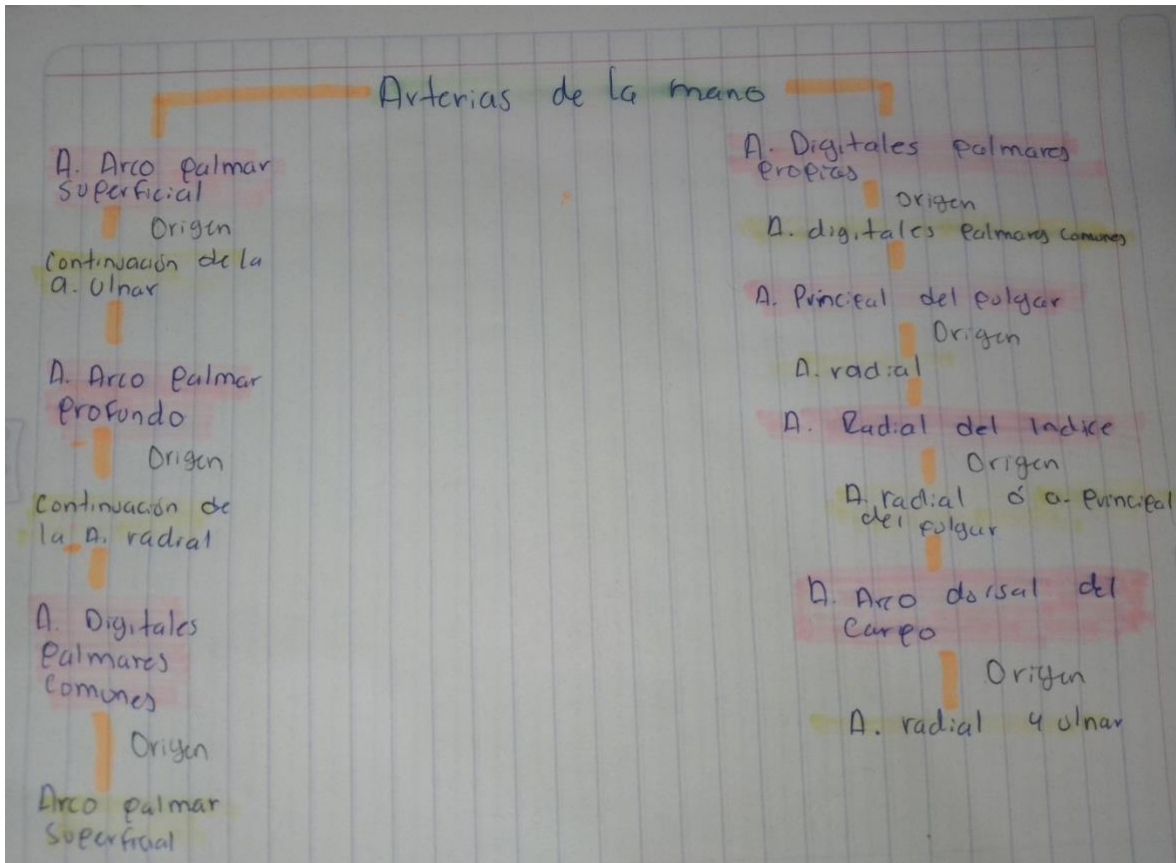 Arterias de la mano
A. Arco palmar
superficial
Origen
Continuación de la
a. ulnar
A. Arco palmar
profundo
Origen
Continuación de
la A. radial
A. Digitales
palmares
comunes
Origen
Arco palmar
superficial
A. Digitales palmares
propias
origen
A. digitales palmares comunes
A. Principal del pulgar
Origen
A. radial
A. Radial del indice
Origen
A. radial ó a. principal
del pulgar
A. Arco dorsal del
carpo
Origen
A. radial y ulnar